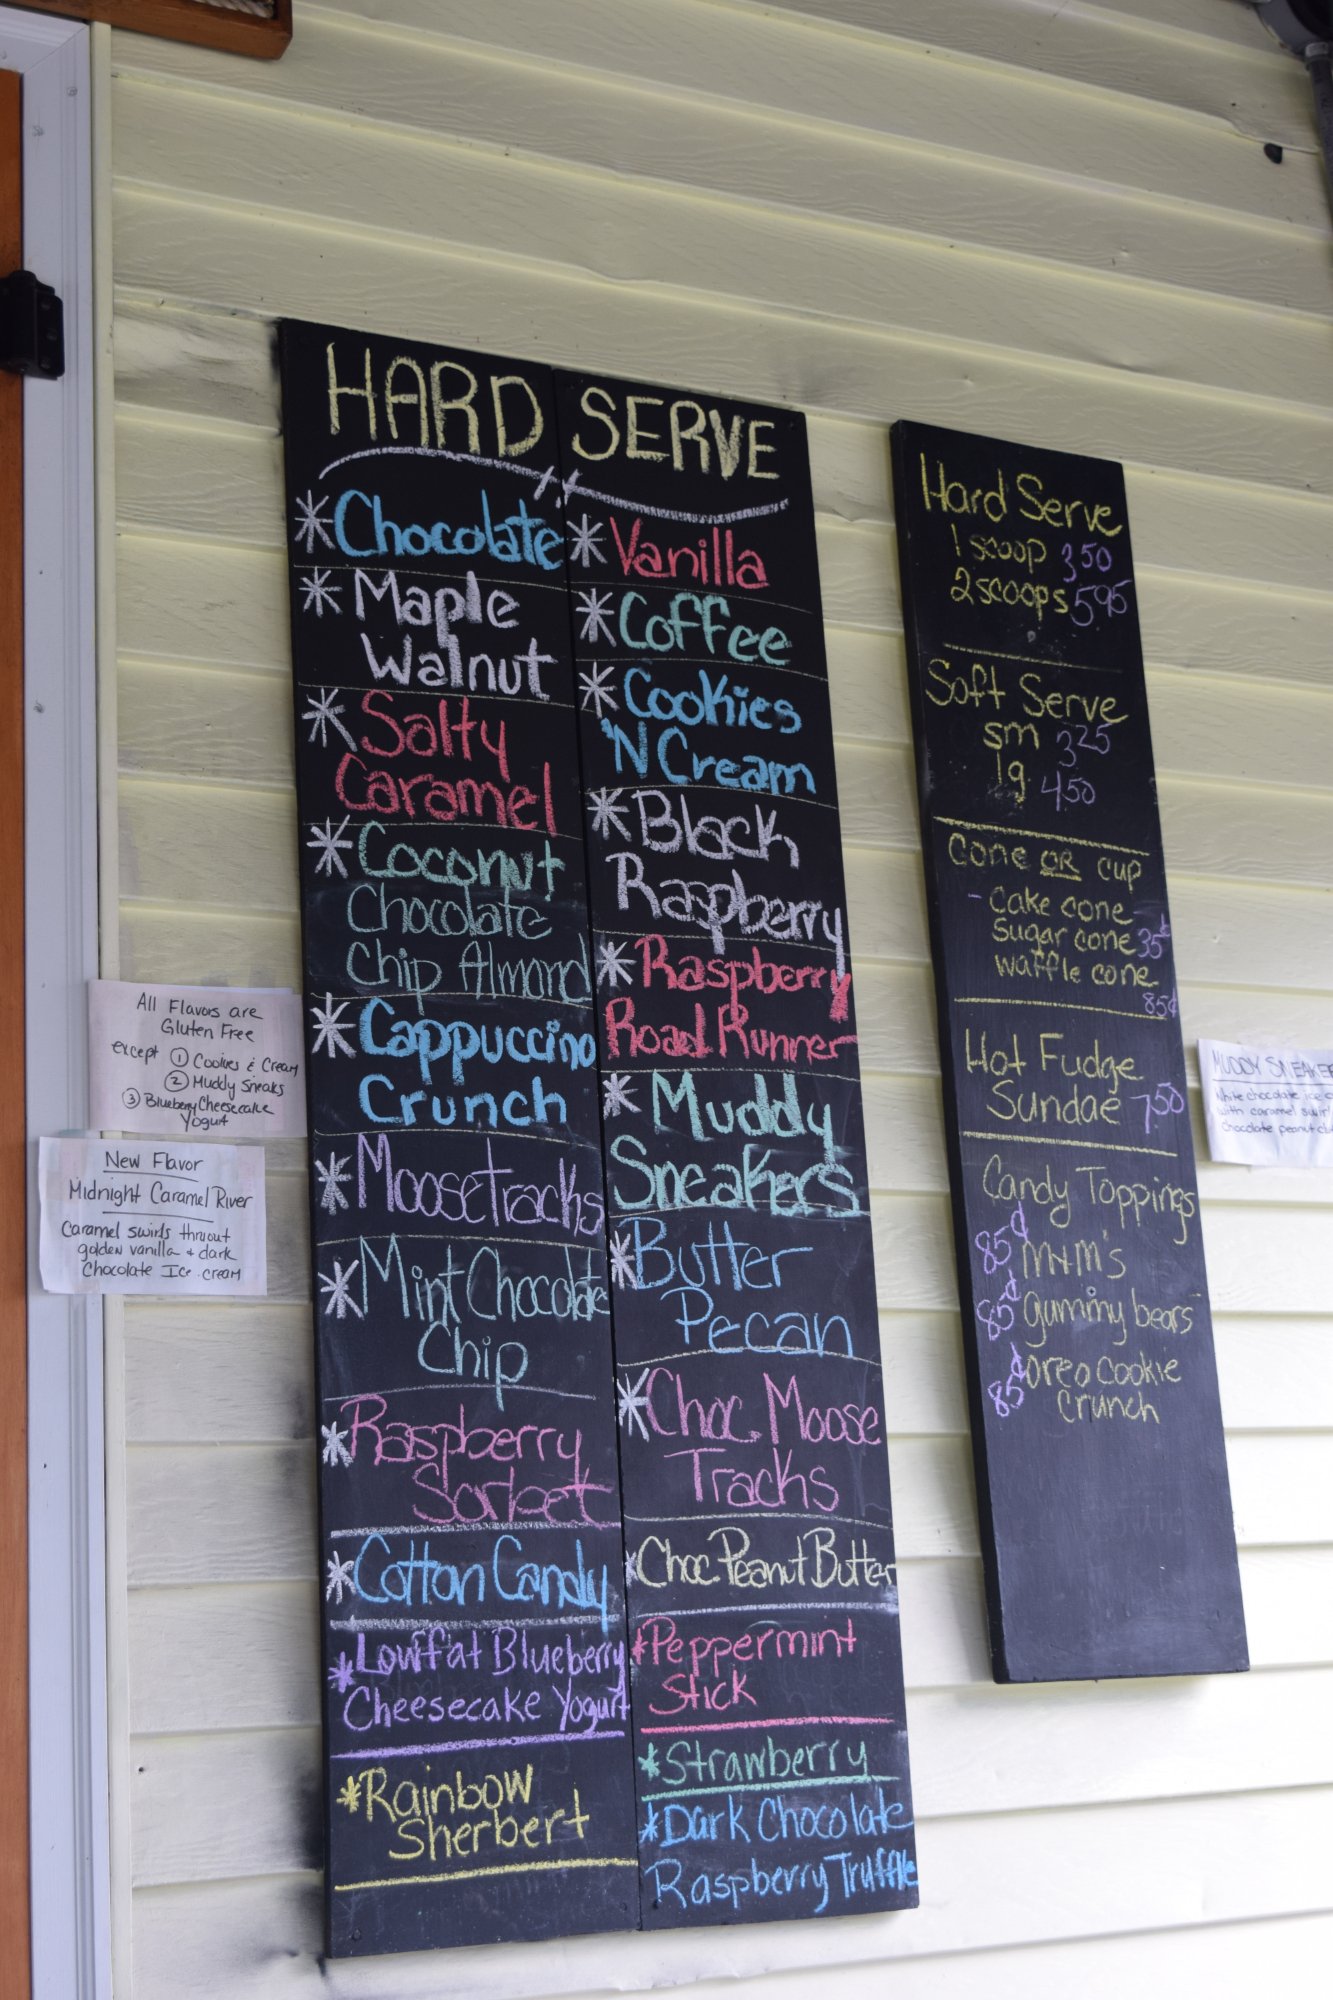 HARD SERVE
* Chocolate
* Maple
Walnut
* Salty
Caramel
* Coconut
Chocolate
Chip Almond
* Cappuccino
Crunch
* Moosetracks
* Mint Chocolate
Chip
* Raspberry
Sorbet
* Cotton Candy
* Lowfat Blueberry
Cheesecake Yogurt
* Rainbow
Sherbert
* Vanilla
* Coffee
* Cookies
'N Cream
* Black
Raspberry
* Raspberry
Road Runner
* Muddy
Sneakers
* Butter
Pecan
* Choc. Moose
Tracks
* Choc Peanut Butter
* Peppermint
Stick
* Strawberry
* Dark Chocolate
Raspberry Truffle
Hard Serve
1 scoop 3.50
2 scoops 5.95
Soft Serve
sm 3.25
lg 4.50
Cone OR cup
- Cake cone
Sugar cone 35¢
waffle cone
85¢
Hot Fudge
Sundae 7.50
Candy Toppings
85¢ M+M's
85¢ gummy bears
85¢ oreo cookie
crunch
All Flavors are
Gluten Free
except ① Cookies & Cream
② Muddy Sneaks
③ Blueberry Cheesecake
Yogurt
New Flavor
Midnight Caramel River
Caramel swirls thruout
golden vanilla + dark
Chocolate Ice cream
MUDDY SNEAKER
White chocolate ice c
with caramel swirl
chocolate peanut